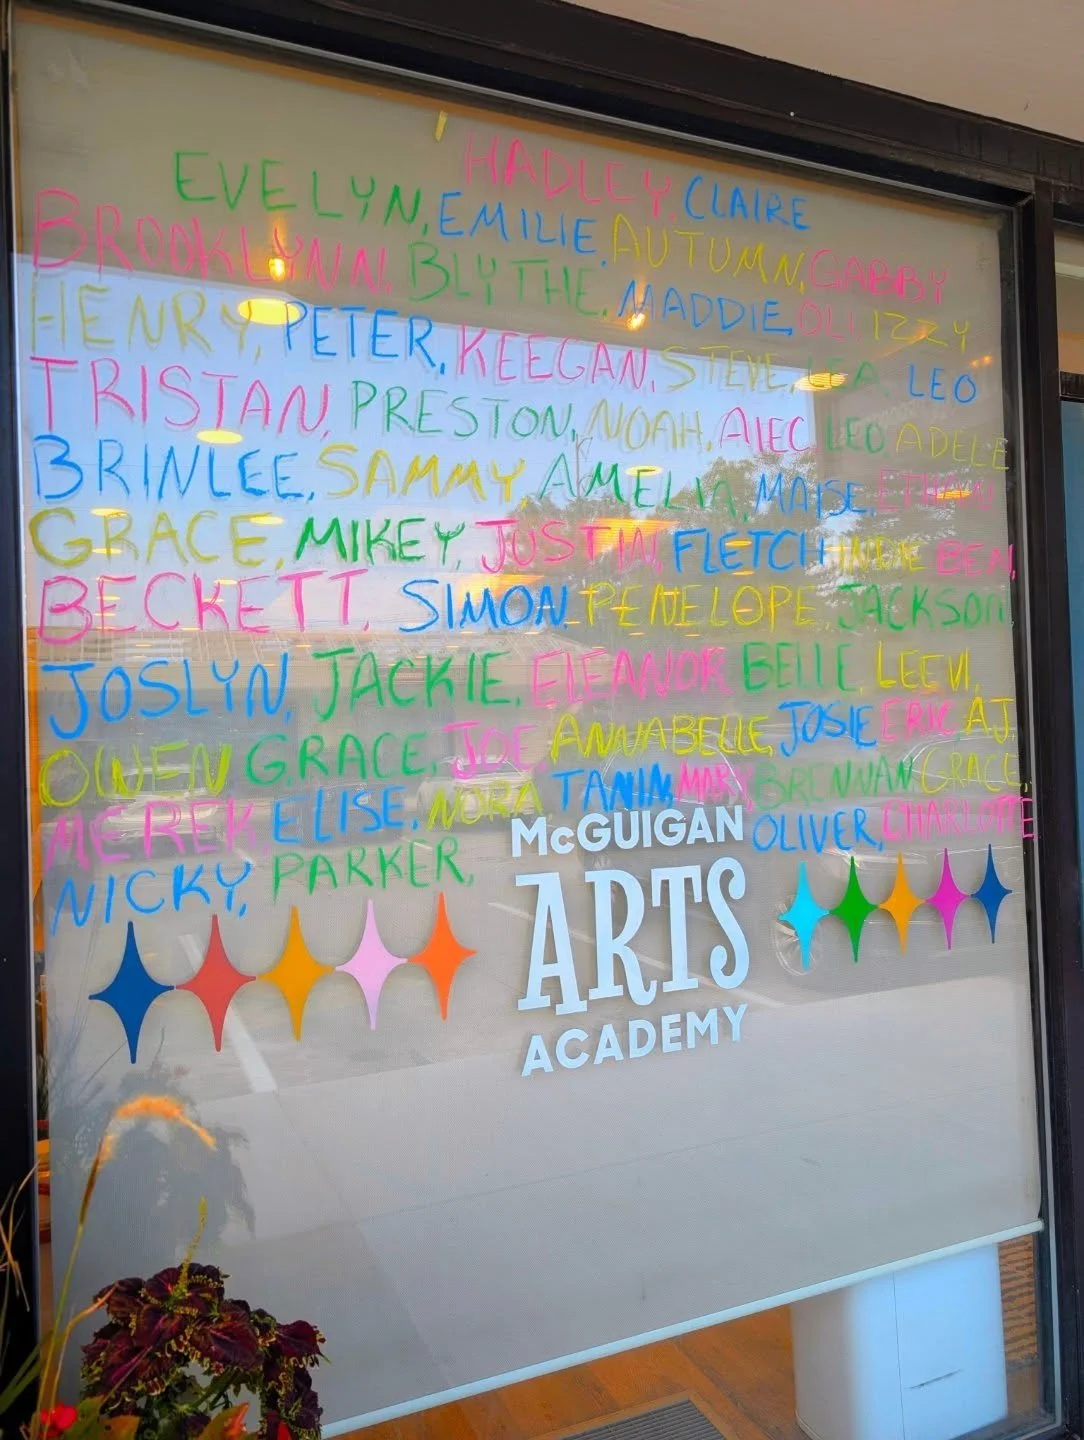 HADLEY, CLAIRE
EVELYN, EMILIE, AUTUMN, GABBY
BROOKLYNN, BLYTHE, MADDIE, OLI, IZZY
HENRY, PETER, KEEGAN, STEVE, LEA, LEO
TRISTAN, PRESTON, NOAH, ALEC LEO ADELE
BRINLEE, SAMMY, AMELIA, MAISE, ETHAN
GRACE, MIKEY, JUSTIN, FLETCH INDIE BEN,
BECKETT, SIMON, PENELOPE, JACKSON,
JOSLYN, JACKIE, ELEANOR BELLE, LEEVI,
OWEN GRACE, JOE ANNABELLE, JOSIE ERIC AJ,
MEREK, ELISE, NORA, TANIM, MARY, BRENNAN, GRACE,
NICKY, PARKER, OLIVER, CHARLOTTE
McGUIGAN
ARTS
ACADEMY